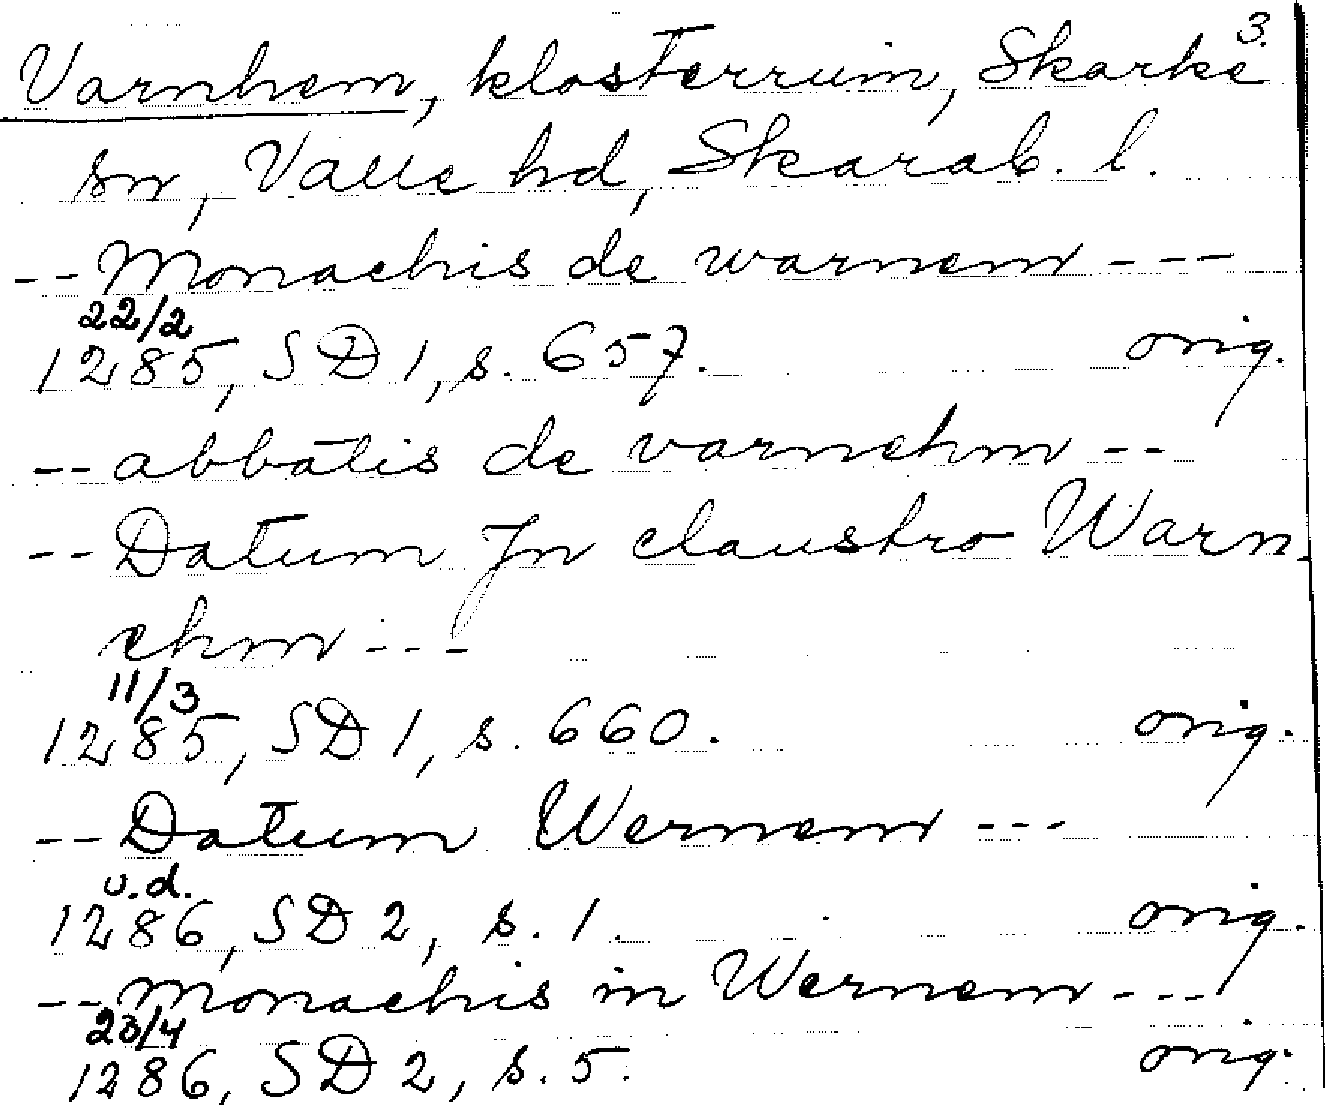 3.
Varnhem, klosterruin, Skarke
sn, Valle hd, Skarab. l.
-- Monachis de warnem ---
22/2
1285, SD 1, s. 657. orig.
-- abbatis de varnehm --
-- Datum Jn claustro Warn
ehm ---
11/3
1285, SD 1, s. 660. orig.
-- Datum Wernem ---
u.d.
1286, SD 2, s. 1. orig.
-- Monachis in Wernem ---
23/4
1286, SD 2, s. 5. orig.